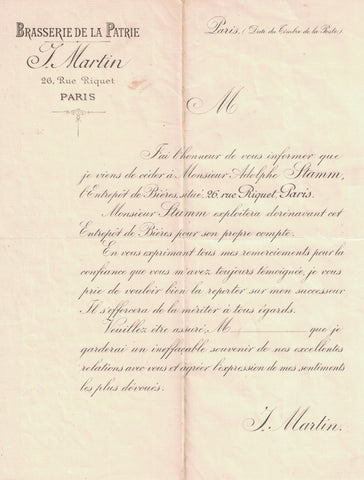 BRASSERIE DE LA PATRIE
J. Martin
26, Rue Riquet
PARIS
Paris, (Date du Timbre de la Poste)
M
J'ai l'honneur de vous informer que
je viens de céder à Monsieur Adolphe Stamm,
l'Entrepôt de Bières, situé 26, rue Riquet, Paris.
Monsieur Stamm exploitera dorénavant cet
Entrepôt de Bières pour son propre compte.
En vous exprimant tous mes remerciements pour la
confiance que vous m'avez toujours témoignée, je vous
prie de vouloir bien la reporter sur mon successeur
Il s'efforcera de la mériter à tous égards.
Veuillez être assuré, M que je
garderai un ineffaçable souvenir de nos excellentes
relations avec vous et agréer l'expression de mes sentiments
les plus dévoués.
J. Martin.